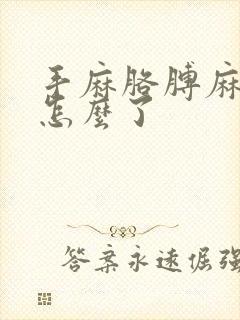 手麻胳膊麻
怎麼了
答案永遠倔強